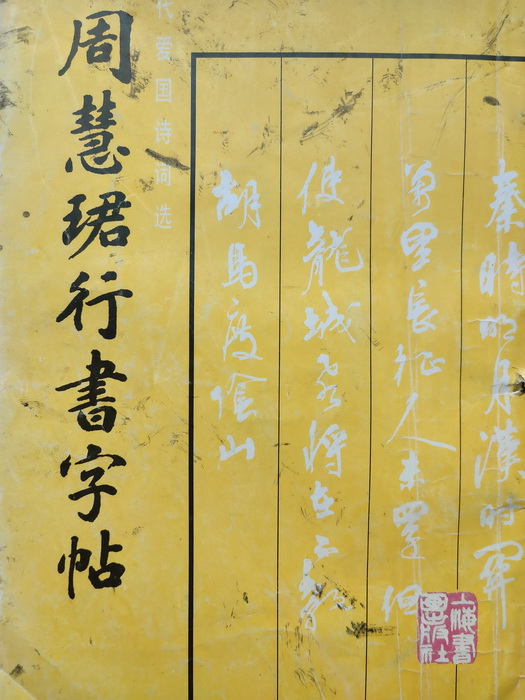 周慧珺行書字帖
代爱国诗词选
秦時明月漢时関
萬里長征人未還但
使龍城飛將在不教
胡馬度陰山
上海書
畫出版社